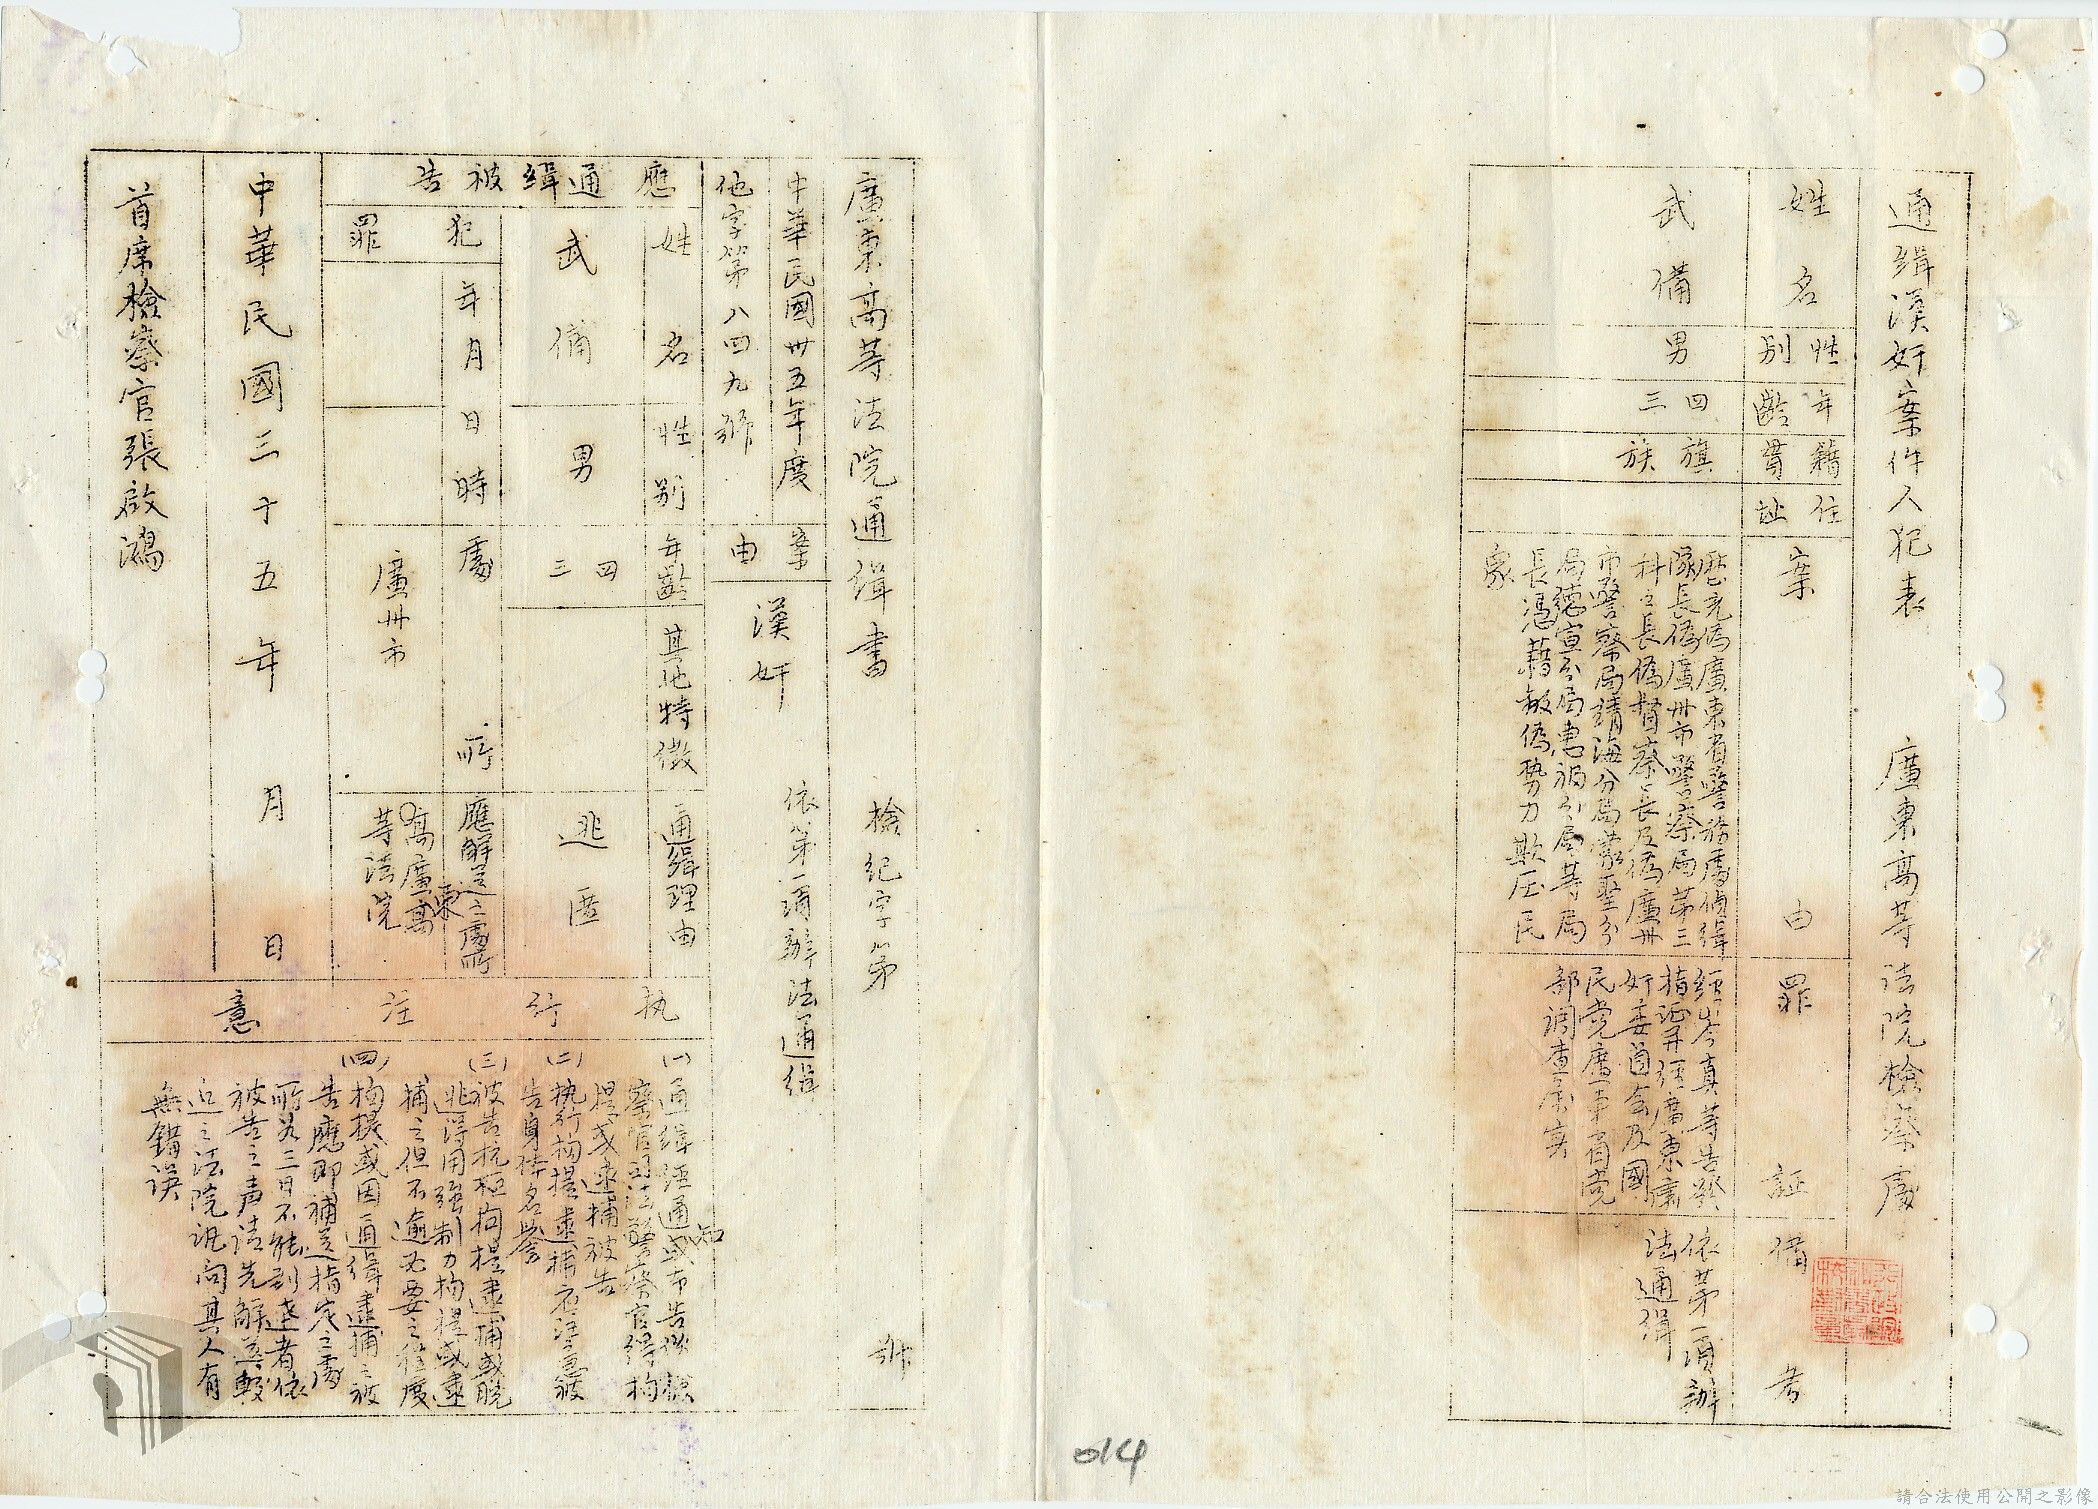 通缉漢奸案件人犯表 廣東高等法院檢察處
姓名
性别
年齡
籍貫
住址
案由
罪証
備考
武備
男
四三
旗族
歷充偽廣東省警務處偵緝
隊長偽廣州市警察局第三
科科長偽督察長及偽廣州
市警察局靖海分局蒙聖分
局德宣分局惠福分局等局
長憑藉敵偽勢力欺压民
眾
經岑真等告發
指証并經廣東肅
奸委員会及國
民党廣東省党
部調查屬实
依第一項辦
法通緝
廣東高等法院通缉書 檢紀字第 號
中華民國卅五年度
他字第八四九號
案由
漢奸
依第一項辦法通缉
應通缉被告
姓名
性别
年齡
其他特徵
通缉理由
武備
男
四三
逃匿
犯罪
年月日時
處所
應解送之處所
廣州市
廣東高
等法院
執行注意
(一)通缉經通知或布告後檢
察官司法警察官得拘
提或逮捕被告
(二)执行拘提逮捕应注意被
告身体名誉
(三)被告抗拒拘提逮捕或脱
逃得用强制力拘提或逮
捕之但不逾必要之程度
(四)拘提或因通缉逮捕之被
告應即補送指定之處
所如三日不能到達者依
被告之声请先解送較
近之法院訊问其人有
無錯误
中華民國三十五年 月 日
首席檢察官張啟鴻
014
請合法使用公開之影像